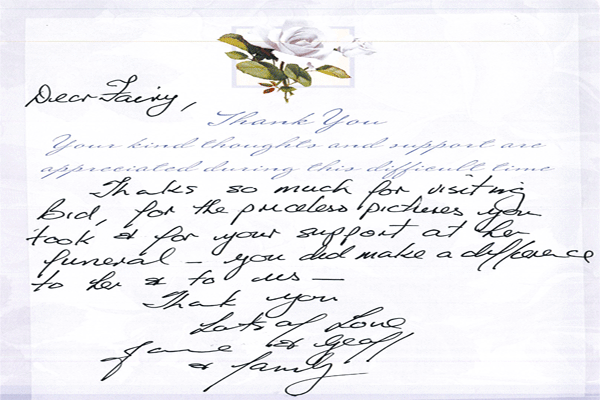 Dear Fairy,
Thank You
Your kind thoughts and support are
appreciated during this difficult time
Thanks so much for visiting
Bid, for the priceless pictures you
took & for your support at her
funeral – you did make a difference
to her & to us –
Thank you
Lots of Love
Jane & Geoff
& family